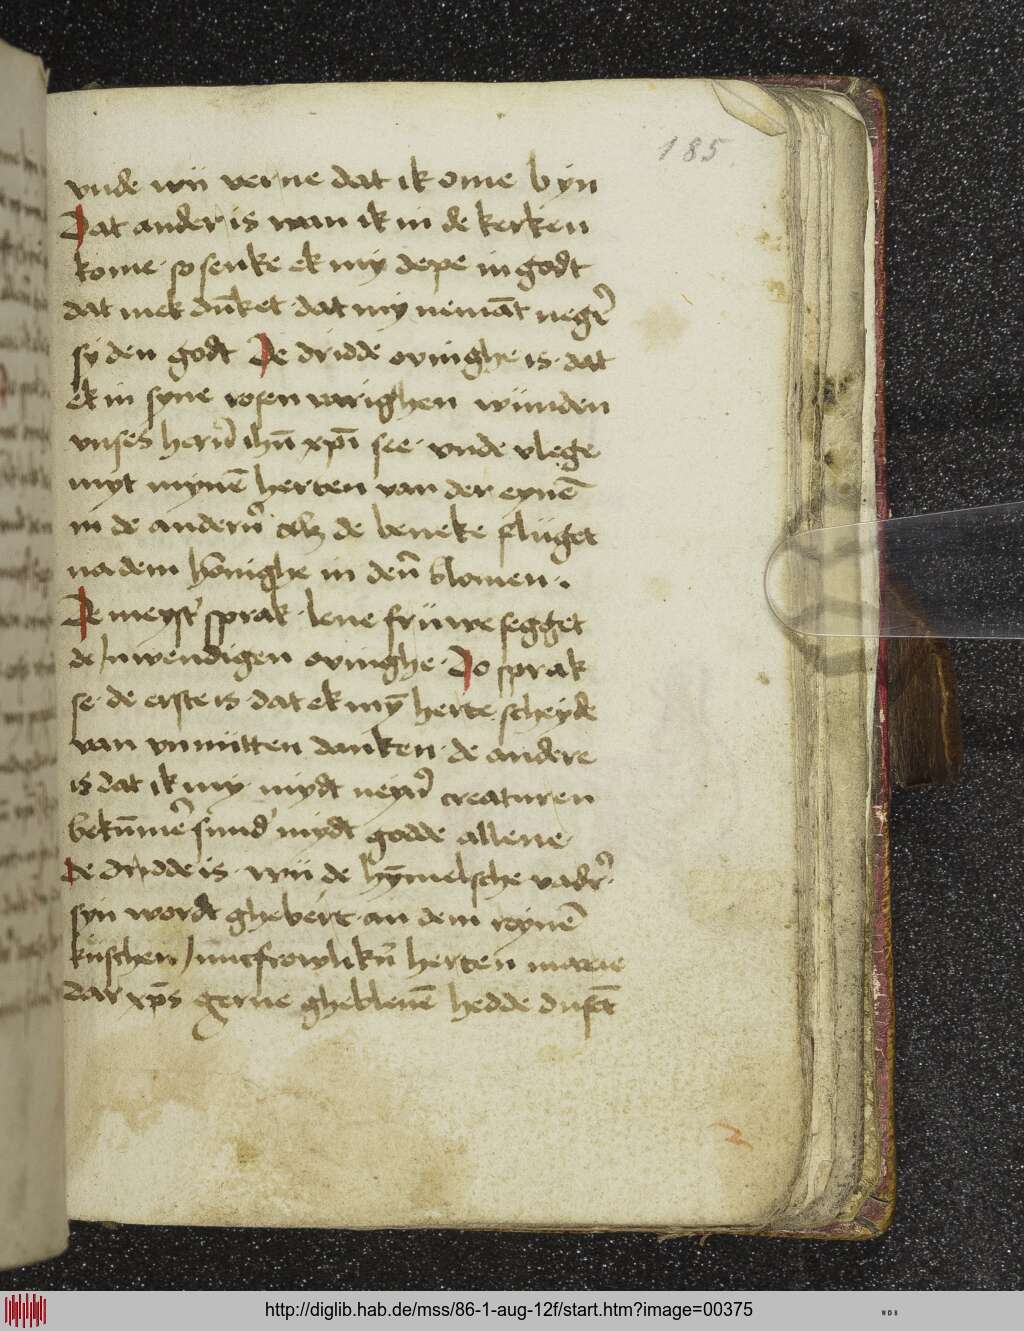 185
vnde wü verne dat ik ome byn
Dat ander is wan ik in de kerken
kome · so senke ek my depe in godt
dat mek dūket · dat my nemāt neger̄
sy den godt De dridde ovinghe is · dat
ek in syne rosen varighen wünden
vnses hern̄ ihū xpī see · vnde vlege
myt mynē herten van der eynē
in de andern̄ alz de beneke flüget
na dem hōnighe in den̄ blomen ·
De meyst' sprak · leue früwe segget
de inwendigen ovinghe · Do sprak
se · de erste is · dat ek my̅ herte scheyde
van vnnütten danken · de andere
is dat ik my mydt neyn̄ creaturen
bekūmer̄ sund' mydt godde allene
De dridde is · wü de hȳmelsche vader̄ ·
syn wordt ghebert · an dem reynē
küschen iuncfrowlikn̄ herten marie
dar xp̄s gerne ghebleuē hedde dusēt
http://diglib.hab.de/mss/86-1-aug-12f/start.htm?image=00375